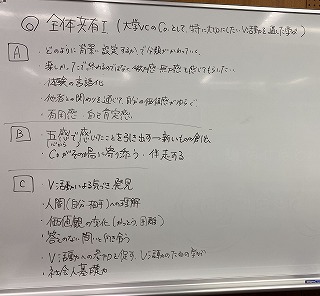 ◎ 全体共有Ⅰ (大学VCのCo.として、特に大切にしたいV活動を通した学び)
A
・どのように背景を設定するかで分類がかわっていく。
楽しかったで終わるのではなく 無力感を感じてもらいたい
・体験の言語化
・他者との関わりを通じて、自分の価値感がゆらぐ
・有用感 自己肯定感
B
・五感で感じたことを引き出す→新しいもの
Coがその場に寄り添う、伴走する
C
・V活動による気づき 発見
・人間(自分・相手)への理解
・価値観の変化 (かっとう、困難)
・答えのない問いと向き合う
・V活動への参加を促す、V活動のための学び
・社会人基礎力